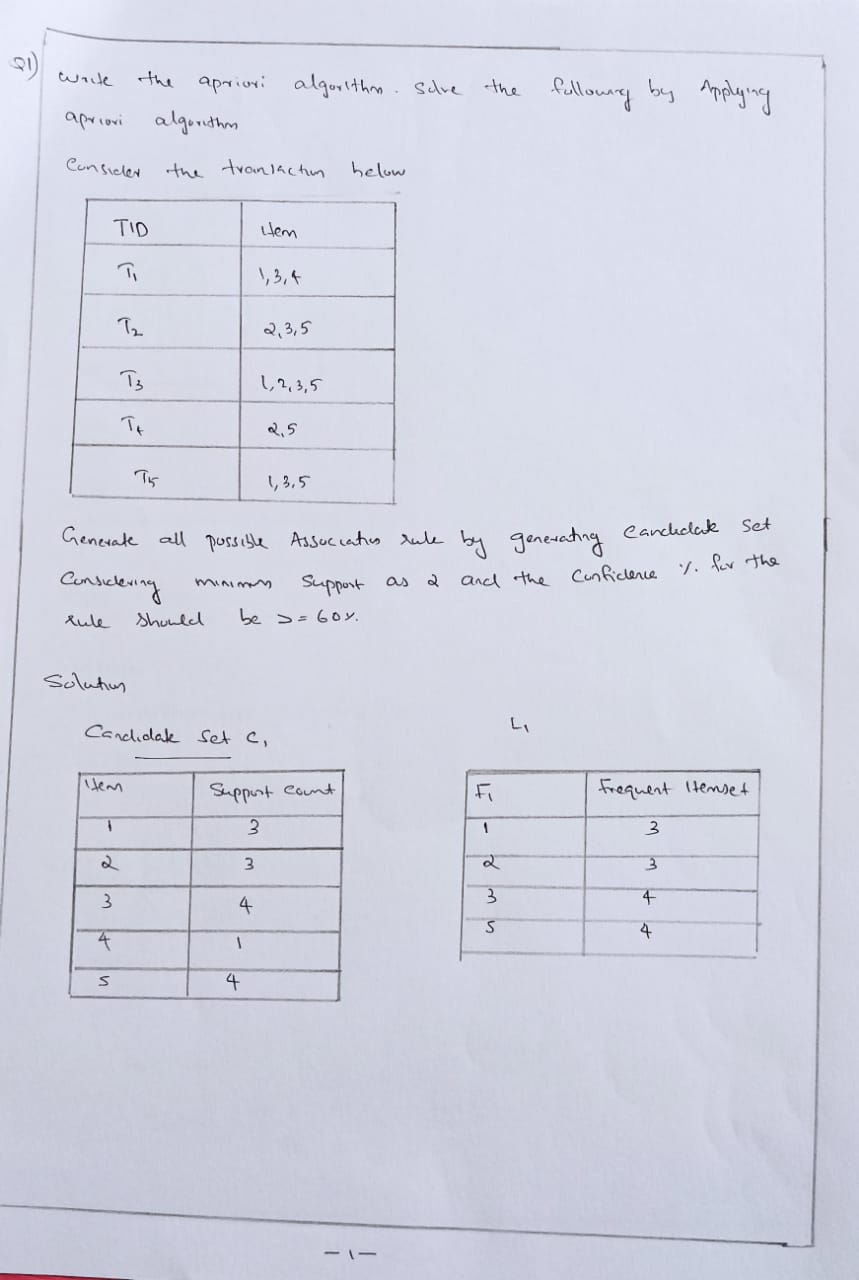 Q1) Write the apriori algorithm. Solve the following by Applying
apriori algorithm
Consider the transaction below
TID Item
T1 1,3,4
T2 2,3,5
T3 1,2,3,5
T4 2,5
T5 1,3,5
Generate all possible Association rule by generating Candidate Set
Considering minimum Support as 2 and the Confidence %. for the
rule Should be >= 60%.
Solution
Candidate Set C1
Item Support Count
1 3
2 3
3 4
4 1
5 4
L1
F1 Frequent Itemset
1 3
2 3
3 4
5 4
-1-